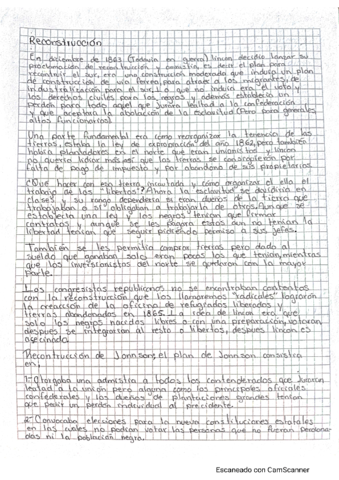 Reconstrucción
En diciembre de 1863 (Todavía en guerra) lincon decidio lanzar su
proclamación de reconstrucción y amnistía, es decir el plan para
recontruir el sur, era una construcion moderada que incluía un plan
de construccion de vía férrea, para atraer a los migrantes, de
industrialización para el sur, lo que no incluía era el voto y
los derechos civiles para los negros y además establecía un
perdón para todo aquel que jurara lealtad a la confederación
y que aceptara la abolación de la esclavitud (Pero para generales
altos funcionarios)
Una parte fundamental era como reorganizar la tenencia de las
tierras, estaba la ley de expropiación del año 1862, pero también
había planteadores en el norte que eran unionistas y lincon
no quería lidiar más así que las tierras se consiguieron por
falta de pago de impuesto y por abandono de sus propietarios
¿Qué hacer con esa tierra incautada y cómo organizar el ella el
trabajo de los "libertos"? Ahora la esclavitud se dividiría en
clases y su rango dependería si eran dueños de la tierra que
trabajaban o al obligaban a trabajarla de otros. Aunque se
establecía una ley y los negros tenían que firmar
contratos y aunque se les pagara estos aun no tenían la
libertad tenían que seguir pidiendo permiso a sus jefes.
También se les permitía comprar tierras pero dado al
sueldo que ganaban solo eran pocos los que tenían, mientras
que los inversionistas del norte se quedaron con la mayor
parte.
Los congresistas republicanos no se encontraban contentos
con la reconstrucción que los llamaremos "radicales" lograron
la creación de la oficina de refugiados liberados y
tierras abandonadas en 1865. La idea de lincon era que
solo los negros nacidos libres o con una preparación, votaran
después se integrarían al resto o libertos, después lincon es
asesinado
Reconstrucción de Johnson, el plan de Johnson consistía
en;
1- Otorgaba una admistia a todos los contenderados que juraran
lealtad a la unión pero alguna como los principales oficiales
confederales y los dueños de plantaciones grandes tenían
que pedir un perdón individual al presidente.
2- Convocaba elecciones para la nueva constituciones estatales
en las cuales no podían votar las personas que no fueran perdona-
das ni la población negra.
Escaneado con CamScanner